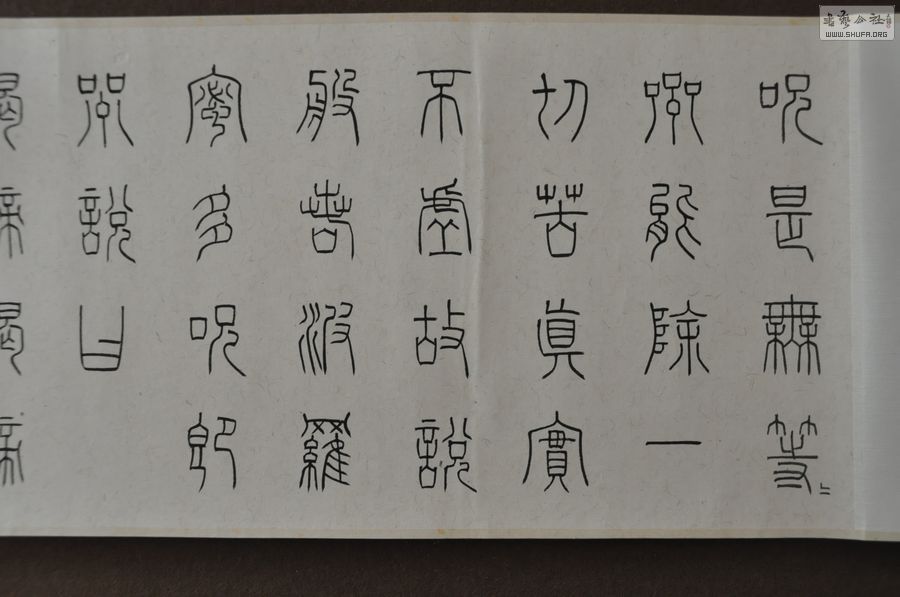 呪是無等〻
咒能除一
切苦真實
不虛故說
般若波羅
蜜多呪即
咒說曰
書藝公社
WWW.SHUFA.ORG